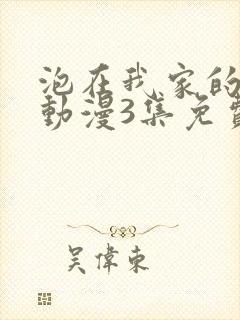 泡在我家的
動漫3集免費
吴偉東